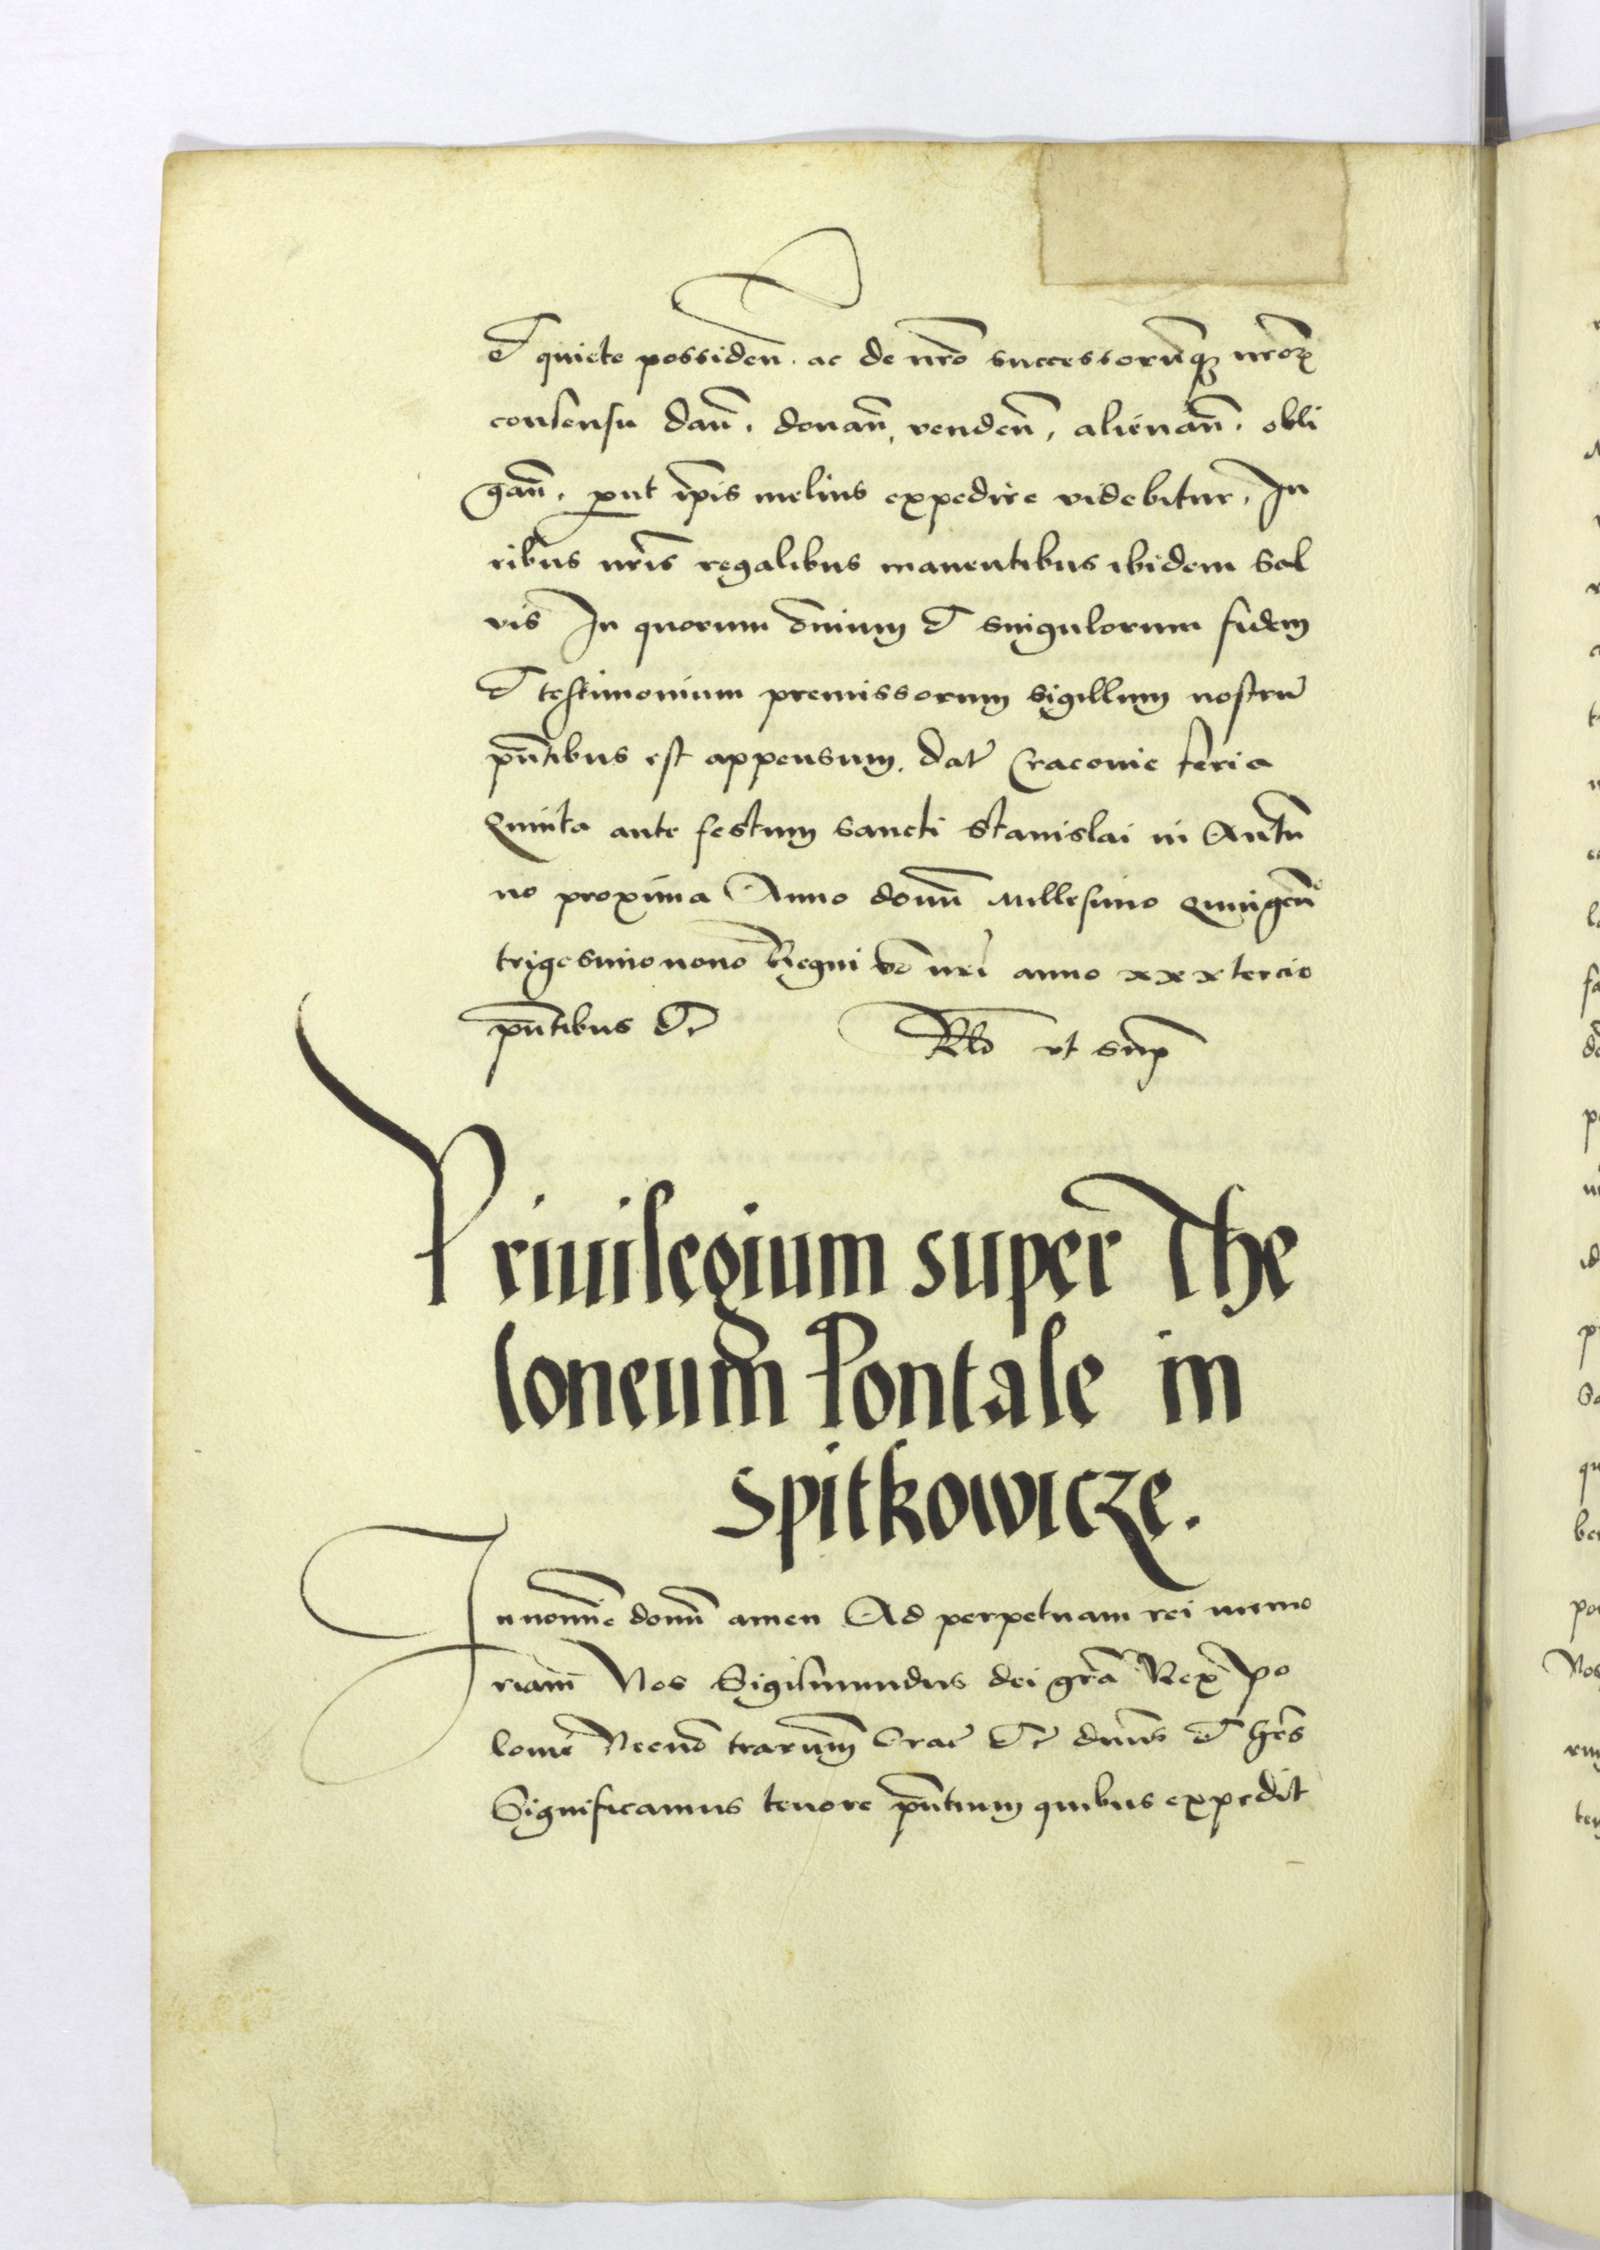 et quiete possideñ. ac de nr̄o successorūqꝫ nr̄oꝝ
consensu dañ. donañ, vendeñ, alienañ. obli
gañ. ꝓut ip̄is melius expedire videbitur. Iu
ribus nr̄is regalibus manentibus ibidem sal
vis In quorum om̄nium et singulorum fidem
et testimonium premissorum sigillum nostrū
pn̄tibus est appensum. dat̄ Cracovie feria
Quinta ante festum sancti Stanislai in Autū
no proxima Anno domī Millesimo Quingen̄o
trigesimo nono Regni vō nr̄i anno xxx tercio
pn̄tibus etc̄ Rl̄o vt sup̄
Priuilegium super The
loneum Pontale in
Spitkowicze.
In nomīe domī amen Ad perpetuam rei memo
riam Nos Sigismundus dei gr̄a Rex Po
lonie Necnō trarum Crac̄ etc̄ dn̄us et hr̄es
Significamus tenore pn̄tium quibus expedit